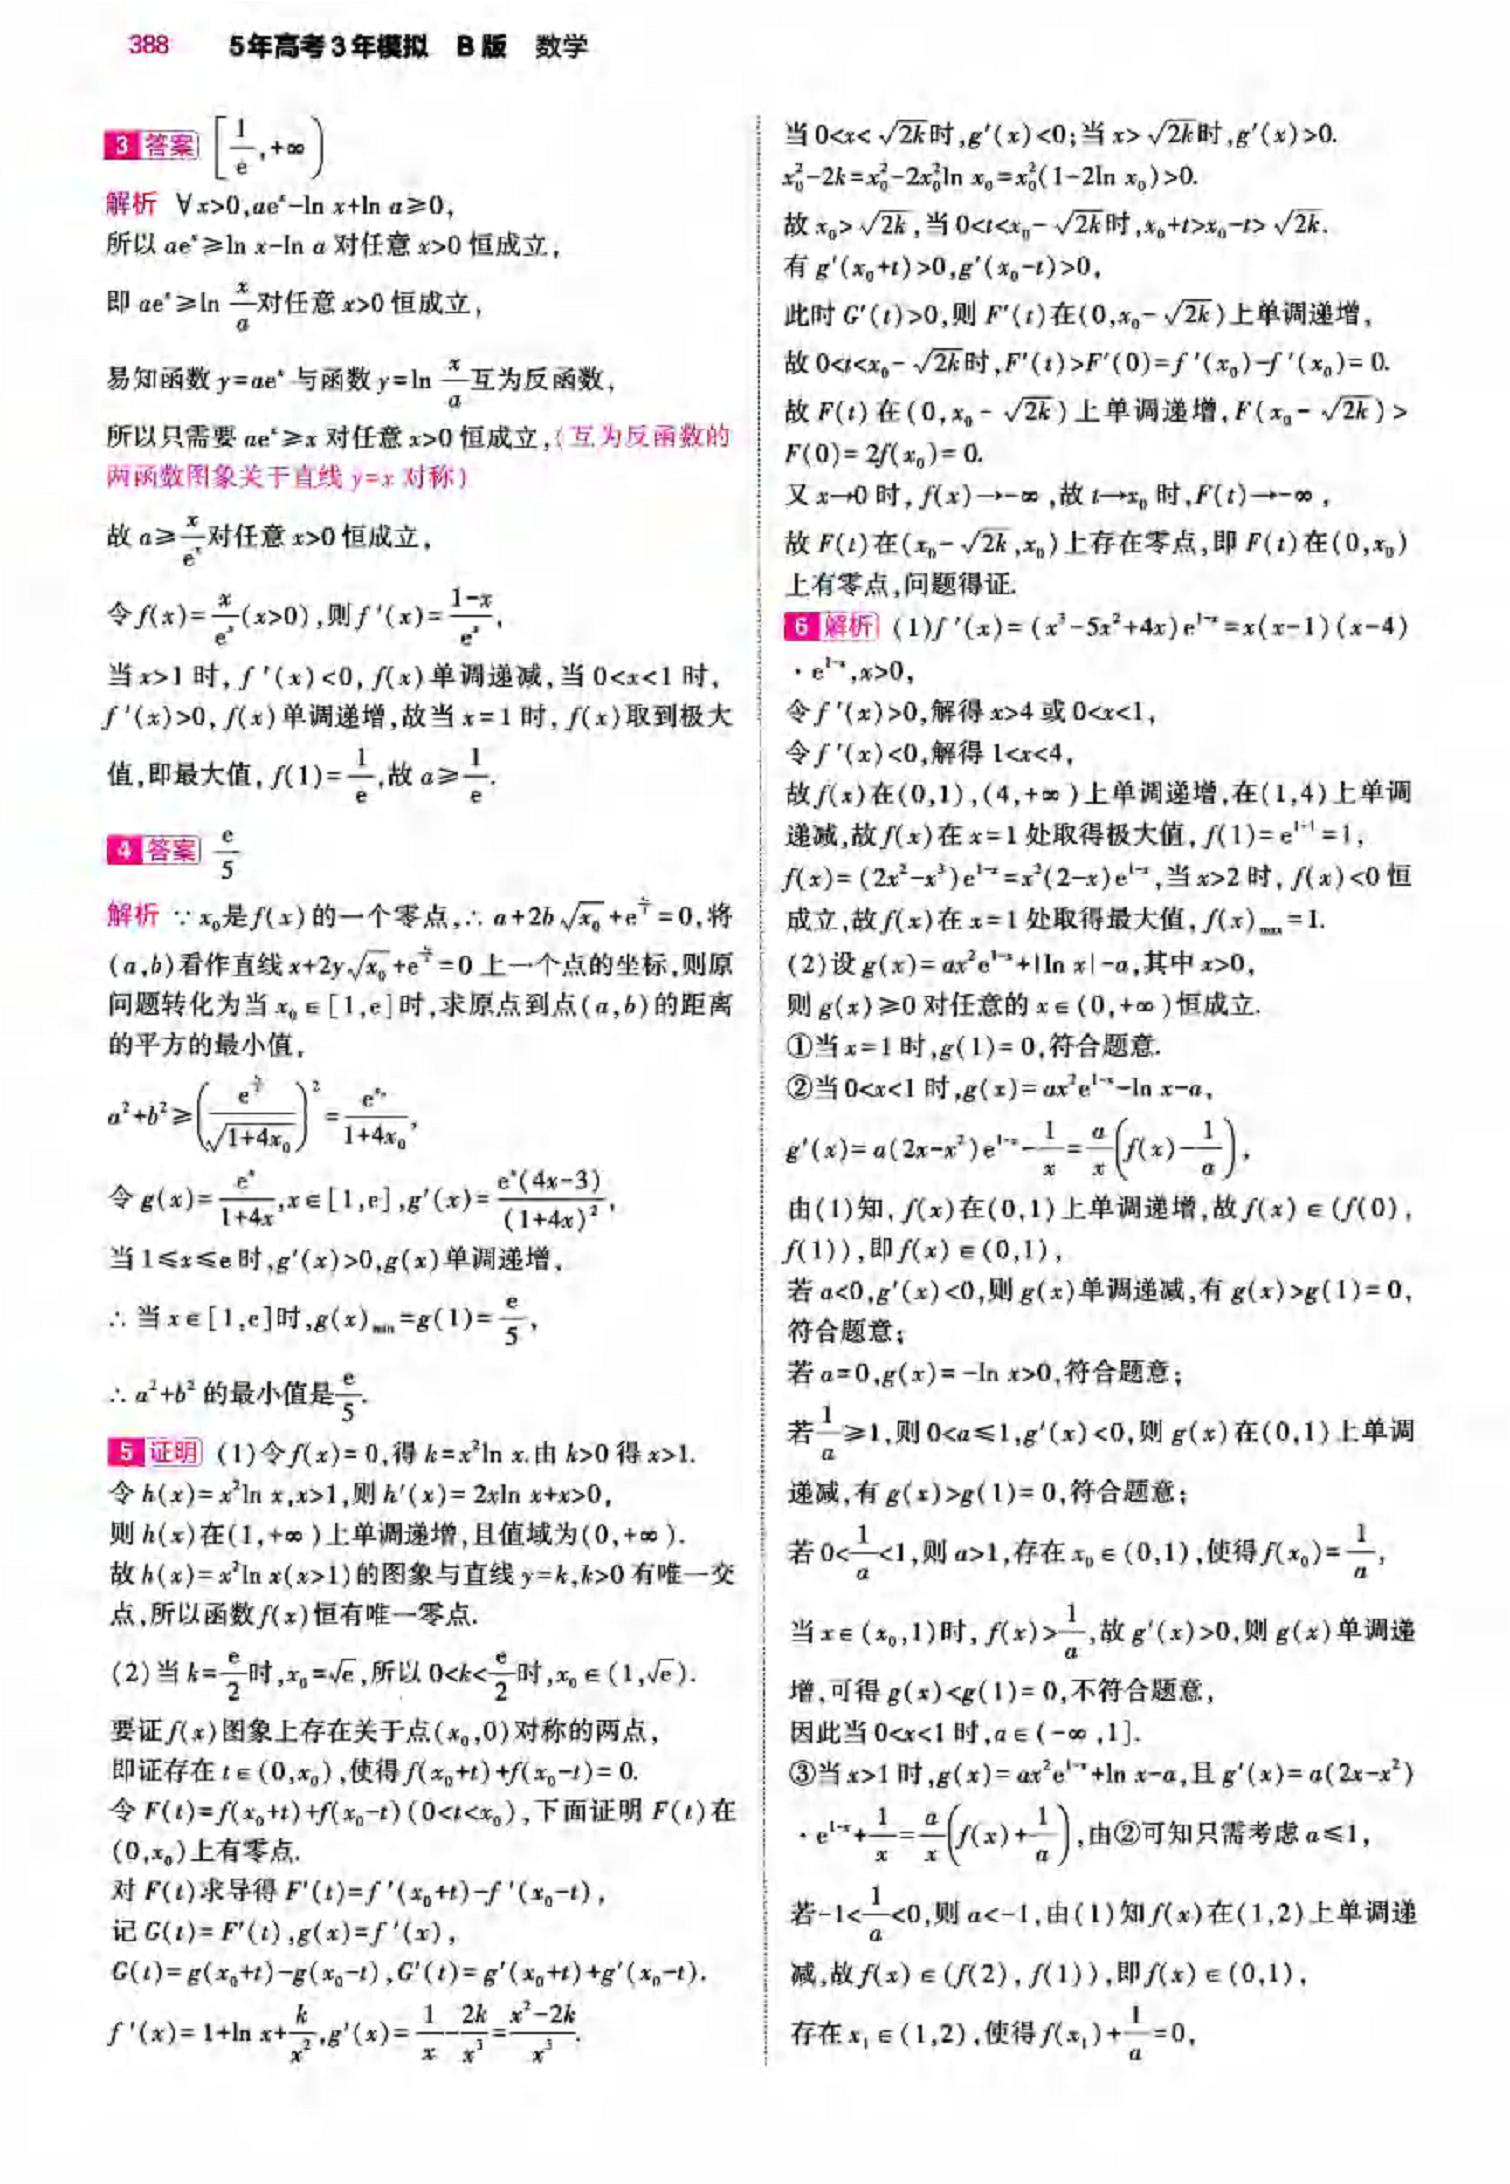 388 5年高考3年模拟 B版 数学
3 答案 [1/e,+∞)
解析 ∀x>0,aeˣ-ln x+ln a≥0,
所以 aeˣ≥ln x-ln a 对任意 x>0 恒成立,
即 aeˣ≥ln x/a 对任意 x>0 恒成立,
易知函数 y=aeˣ 与函数 y=ln x/a 互为反函数,
所以只需要 aeˣ≥x 对任意 x>0 恒成立,(互为反函数的
两函数图象关于直线 y=x 对称)
故 a≥x/eˣ 对任意 x>0 恒成立,
令 f(x)=x/eˣ(x>0),则 f'(x)=(1-x)/eˣ,
当 x>1 时, f'(x)<0, f(x)单调递减,当 0<x<1 时,
f'(x)>0, f(x)单调递增,故当 x=1 时, f(x)取到极大
值,即最大值, f(1)=1/e,故 a≥1/e.
4 答案 e/5
解析 ∵x₀是 f(x)的一个零点,∴a+2b√x₀+e^(x₀/2)=0,将
(a,b)看作直线 x+2y√x₀+e^(x₀/2)=0 上一个点的坐标,则原
问题转化为当 x₀∈[1,e]时,求原点到点(a,b)的距离
的平方的最小值,
a²+b²≥(e^(x₀/2)/√(1+4x₀))²=e^(x₀)/(1+4x₀),
令 g(x)=eˣ/(1+4x),x∈[1,e],g'(x)=eˣ(4x-3)/(1+4x)²,
当 1≤x≤e 时,g'(x)>0,g(x)单调递增,
∴当 x∈[1,e]时,g(x)min=g(1)=e/5,
∴a²+b² 的最小值是 e/5.
5 证明 (1)令 f(x)=0,得 k=x²ln x.由 k>0 得 x>1.
令 h(x)=x²ln x,x>1,则 h'(x)=2xln x+x>0,
则 h(x)在(1,+∞)上单调递增,且值域为(0,+∞).
故 h(x)=x²ln x(x>1)的图象与直线 y=k,k>0 有唯一交
点,所以函数 f(x)恒有唯一零点.
(2)当 k=e/2 时,x₀=√e,所以 0<k<e/2 时,x₀∈(1,√e).
要证 f(x)图象上存在关于点(x₀,0)对称的两点,
即证存在 t∈(0,x₀),使得 f(x₀+t)+f(x₀-t)=0.
令 F(t)=f(x₀+t)+f(x₀-t)(0<t<x₀),下面证明 F(t)在
(0,x₀)上有零点.
对 F(t)求导得 F'(t)=f'(x₀+t)-f'(x₀-t),
记 G(t)=F'(t),g(x)=f'(x),
G(t)=g(x₀+t)-g(x₀-t),G'(t)=g'(x₀+t)+g'(x₀-t).
f'(x)=1+ln x+k/x²,g'(x)=1/x-2k/x³=(x²-2k)/x³.
当 0<x<√2k时,g'(x)<0;当 x>√2k时,g'(x)>0.
x₀²-2k=x₀²-2x₀²ln x₀=x₀²(1-2ln x₀)>0.
故 x₀>√2k,当 0<t<x₀-√2k时,x₀+t>x₀-t>√2k.
有 g'(x₀+t)>0,g'(x₀-t)>0,
此时 G'(t)>0,则 F'(t)在(0,x₀-√2k)上单调递增,
故 0<t<x₀-√2k时,F'(t)>F'(0)=f'(x₀)-f'(x₀)=0.
故 F(t)在(0,x₀-√2k)上单调递增,F(x₀-√2k)>
F(0)=2f(x₀)=0.
又 x→0 时, f(x)→-∞,故 t→x₀ 时,F(t)→-∞,
故 F(t)在(x₀-√2k,x₀)上存在零点,即 F(t)在(0,x₀)
上有零点,问题得证.
6 解析 (1)f'(x)=(x³-5x²+4x)e¹⁻ˣ=x(x-1)(x-4)
·e¹⁻ˣ,x>0,
令 f'(x)>0,解得 x>4 或 0<x<1,
令 f'(x)<0,解得 1<x<4,
故 f(x)在(0,1),(4,+∞)上单调递增,在(1,4)上单调
递减,故 f(x)在 x=1 处取得极大值, f(1)=e¹⁻¹=1,
f(x)=(2x²-x³)e¹⁻ˣ=x²(2-x)e¹⁻ˣ,当 x>2 时, f(x)<0 恒
成立,故 f(x)在 x=1 处取得最大值, f(x)max=1.
(2)设 g(x)=ax²e¹⁻ˣ+|ln x|-a,其中 x>0,
则 g(x)≥0 对任意的 x∈(0,+∞)恒成立.
①当 x=1 时,g(1)=0,符合题意.
②当 0<x<1 时,g(x)=ax²e¹⁻ˣ-ln x-a,
g'(x)=a(2x-x²)e¹⁻ˣ-1/x=a/x(f(x)-1/a),
由(1)知, f(x)在(0,1)上单调递增,故 f(x)∈(f(0),
f(1)),即 f(x)∈(0,1),
若 a<0,g'(x)<0,则 g(x)单调递减,有 g(x)>g(1)=0,
符合题意;
若 a=0,g(x)=-ln x>0,符合题意;
若 1/a≥1,则 0<a≤1,g'(x)<0,则 g(x)在(0,1)上单调
递减,有 g(x)>g(1)=0,符合题意;
若 0<1/a<1,则 a>1,存在 x₀∈(0,1),使得 f(x₀)=1/a,
当 x∈(x₀,1)时, f(x)>1/a,故 g'(x)>0,则 g(x)单调递
增,可得 g(x)<g(1)=0,不符合题意,
因此当 0<x<1 时,a∈(-∞,1].
③当 x>1 时,g(x)=ax²e¹⁻ˣ+ln x-a,且 g'(x)=a(2x-x²)
·e¹⁻ˣ+1/x=a/x(f(x)+1/a),由②可知只需考虑 a≤1,
若-1<1/a<0,则 a<-1,由(1)知 f(x)在(1,2)上单调递
减,故 f(x)∈(f(2), f(1)),即 f(x)∈(0,1),
存在 x₁∈(1,2),使得 f(x₁)+1/a=0,